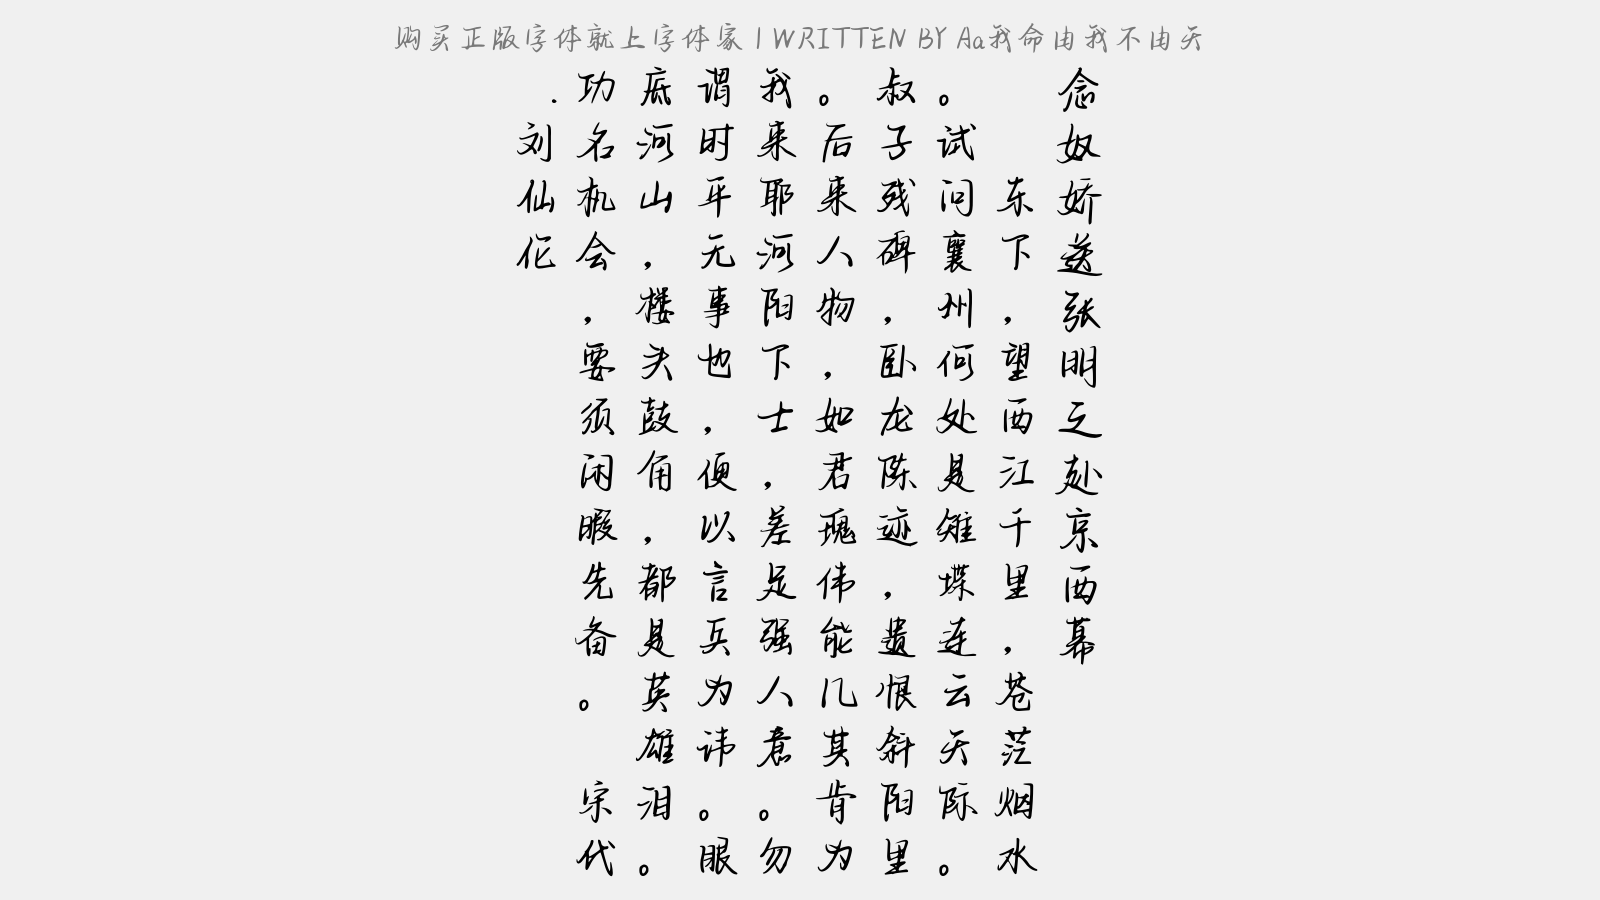 购买正版字体就上字体家 | WRITTEN BY Aa我命由我不由天
念奴娇送张明之赴京西幕
东下，望西江千里，苍茫烟水
。试问襄州何处是雉堞连云天际。
叔子残碑，卧龙陈迹，遗恨斜阳里
。后来人物，如君瑰伟能几其肯为
我来耶河阳下士，差足强人意。勿
谓时平无事也，便以言兵为讳。眼
底河山，楼头鼓角，都是英雄泪。
功名机会，要须闲暇先备。 宋代
.刘仙伦